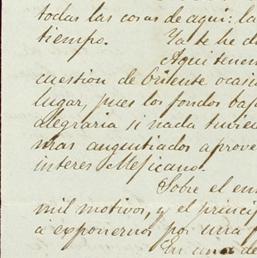 todas las cosas de aqui: la
tiempo. Ya te he d
Aqui tenem
cuestion de Oriente ocasi
lugar, pues los fondos baj
alegraria si nada tuvie
mas angustiados aprove
interes Mejicano.
Sobre el en
mil motivos, y el princip
á exponernos por una
En una de